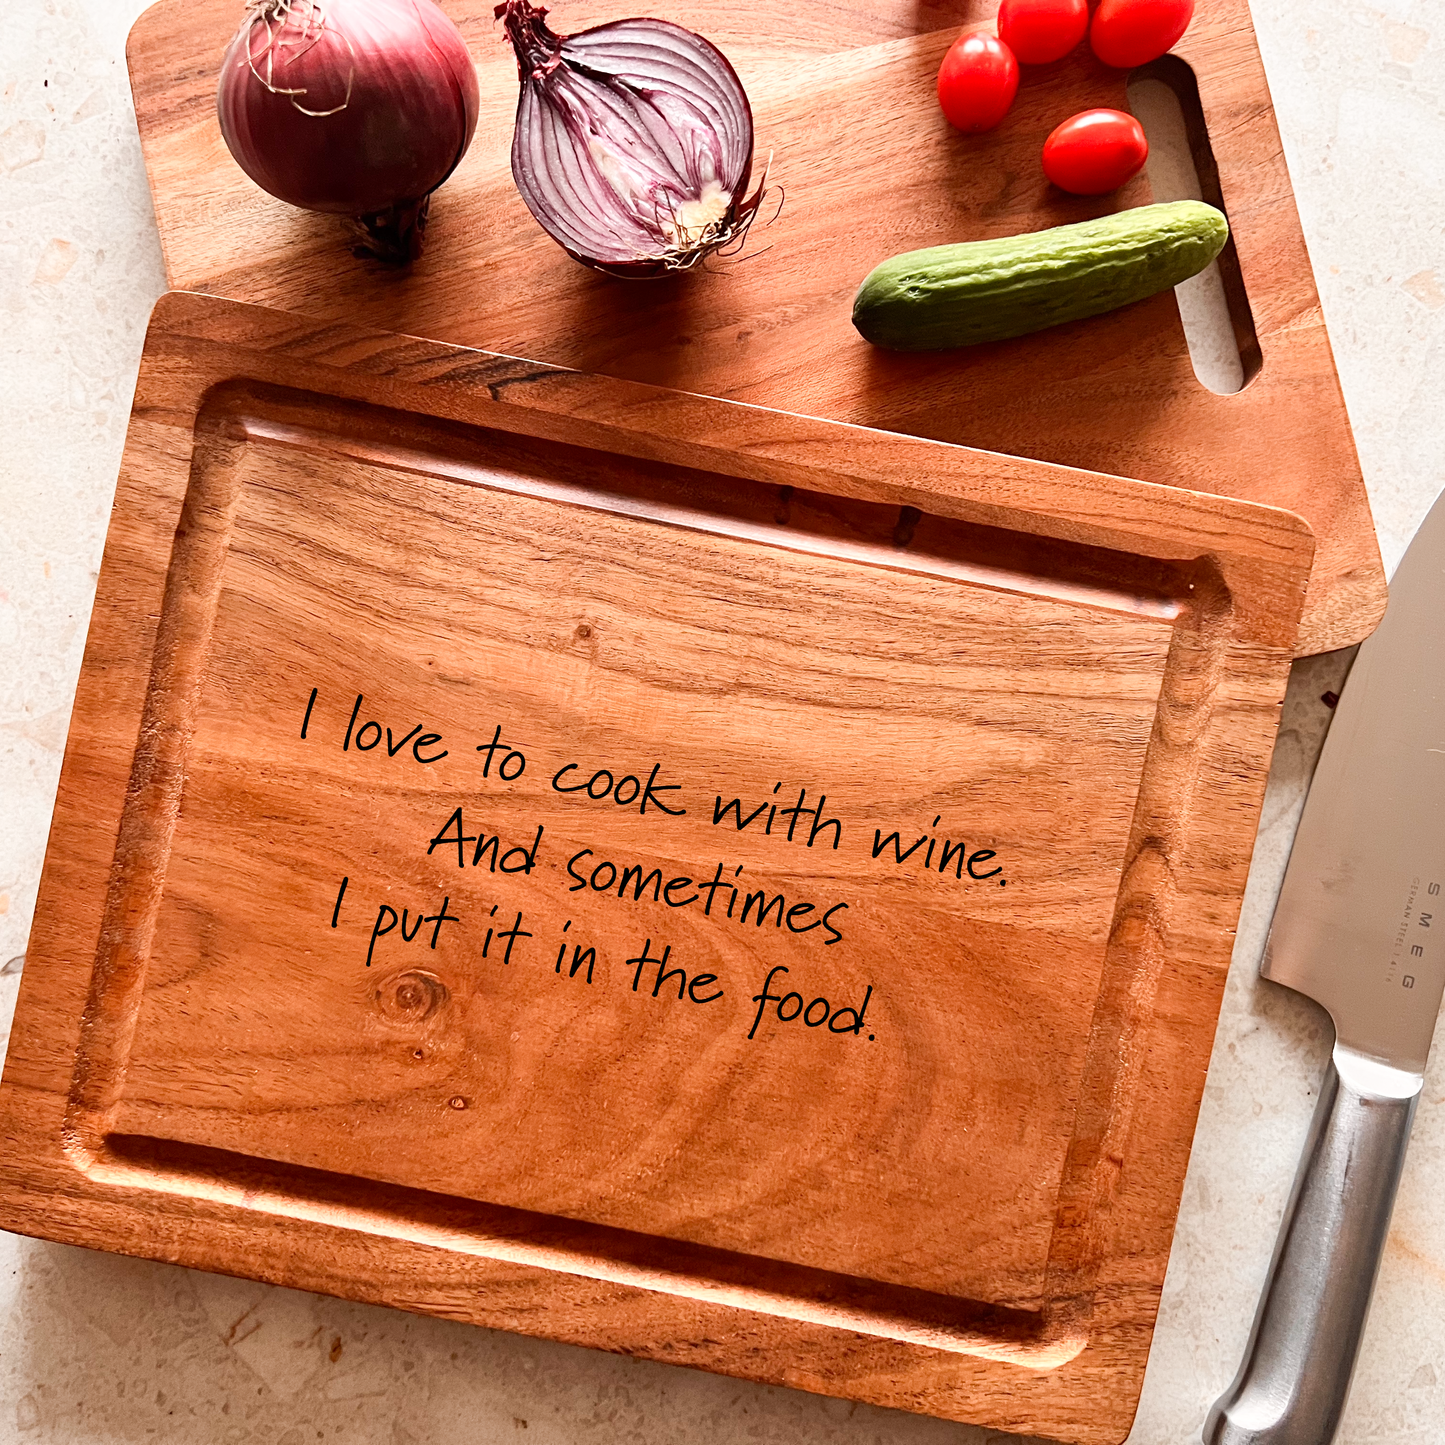 I love to cook with wine.
And sometimes
I put it in the food.
SMEG